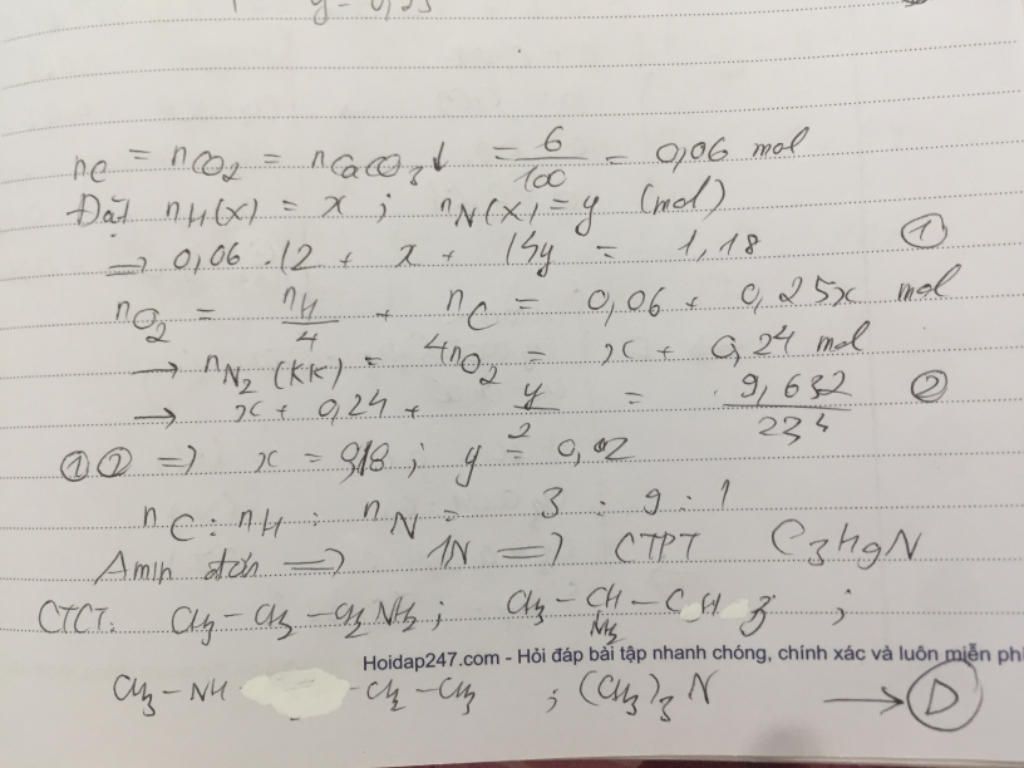 y = 0,23
nC = nCO2 = nCaCO3↓ = 6/100 = 0,06 mol
Đặt nH(X) = x ; nN(X) = y (mol)
→ 0,06 . 12 + x + 14y = 1,18 ①
nO2 = nH/4 + nC = 0,06 + 0,25x mol
→ nN2 (KK) = 4nO2 = x + 0,24 mol
→ x + 0,24 + y/2 = 9,632/22,4 ②
①② => x = 0,18 ; y = 0,02
nC : nH : nN = 3 : 9 : 1
Amin đơn => 1N => CTPT C3H9N
CTCT: CH3 - CH2 - CH2NH2 ; CH3 - CH - CH3 ;
NH2
Hoidap247.com - Hỏi đáp bài tập nhanh chóng, chính xác và luôn miễn phí
CH3 - NH - CH2 - CH3 ; (CH3)3 N → D